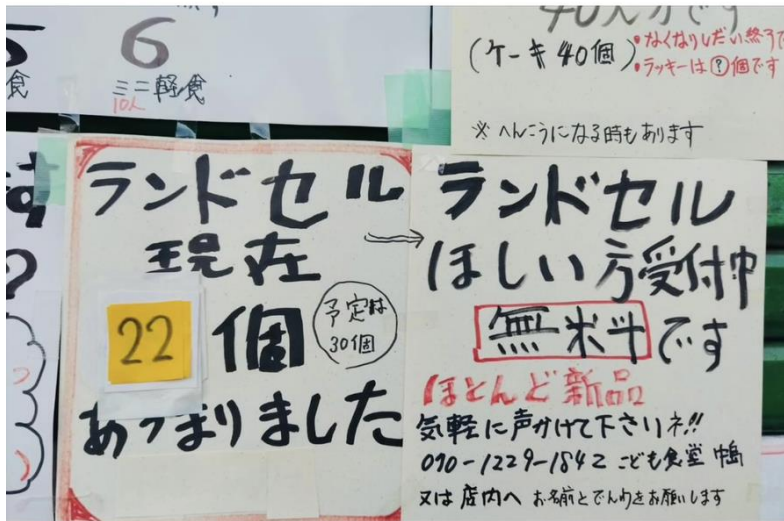 食
6
ミニ軽食
10人
40人分です
(ケーキ40個)
・なくなりしだい終了で
・ラッキーは?個です
※へんこうになる時もあります
ランドセル
現在
22個
予定は
30個
あつまりました
→
ランドセル
ほしい方受付中
無料です
ほとんど新品
気軽に声かけて下さいネ!!
090-1229-1842 こども食堂 中島
又は店内へ お名前とでんわをお願いします